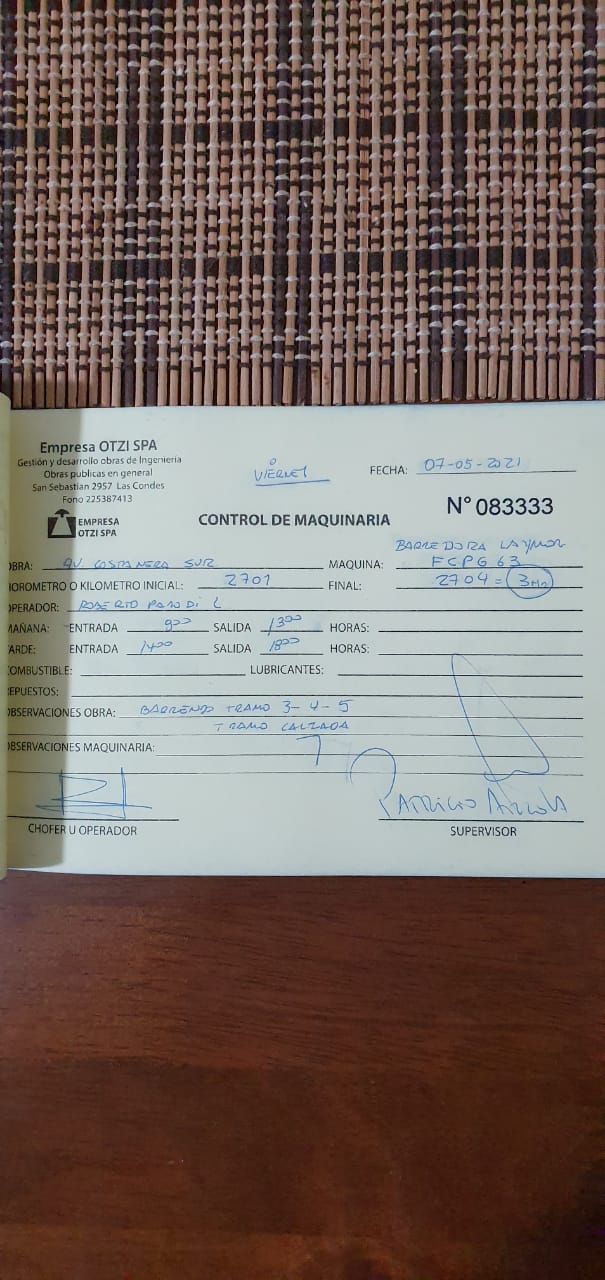 Empresa OTZI SPA
Gestión y desarrollo obras de Ingenieria
Obras publicas en general
San Sebastian 2957 Las Condes
Fono 225387413
EMPRESA
OTZI SPA
VIERNES
FECHA: 07-05-2021
N° 083333
CONTROL DE MAQUINARIA
BARREDORA LAYMOR
OBRA: AV COSTANERA SUR MAQUINA: FCPG63
HOROMETRO O KILOMETRO INICIAL: 2701 FINAL: 2704 = 3
OPERADOR: ROBERTO PARODI L
MAÑANA: ENTRADA 900 SALIDA 1300 HORAS:
TARDE: ENTRADA 1400 SALIDA 1800 HORAS:
COMBUSTIBLE: LUBRICANTES:
REPUESTOS:
OBSERVACIONES OBRA: BARRENDO TRAMO 3-4-5
TRAMO CALZADA
OBSERVACIONES MAQUINARIA:
PATRICIO
CHOFER U OPERADOR SUPERVISOR